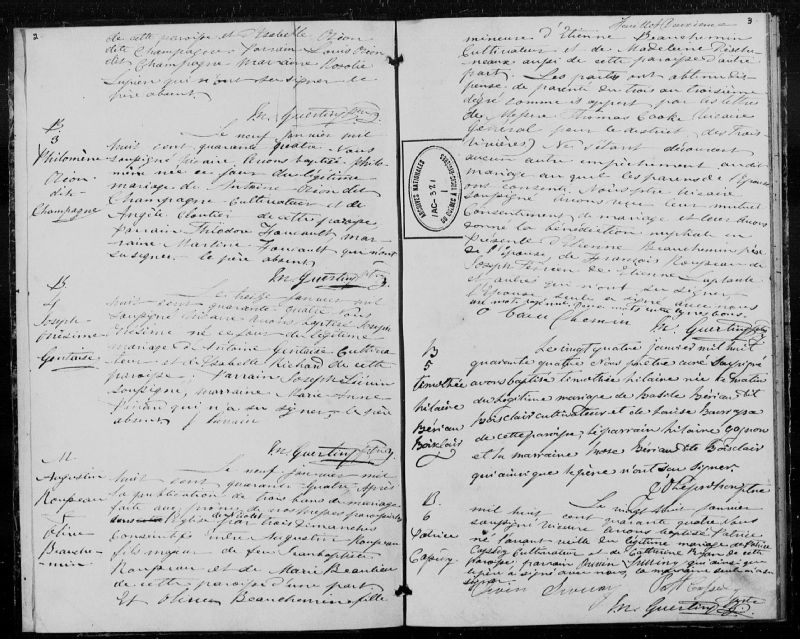 2
de cette paroisse et d'Isabelle Rion
dite Champagne. Parrain Louis Rion
dit Champagne Marraine Rosalie
Lupien qui n'ont su signer le
père absent.
M. Guertin Ptre
B
3
Philomène
Rion
dit
Champagne
Le neuf janvier mil
huit cent quarante quatre Nous
soussigné Vicaire Avons baptisé Philo-
mène née ce jour du légitime
mariage de Antoine Rion dit
Champagne Cultivateur et de
Angèle Cloutier de cette paroisse
parrain Théodore Foucault, mar-
raine Martine Foucault qui n'ont
su signer. le père absent
M. Guertin Ptre
B
4
Joseph
Onésime
Gentesse
Le treize janvier mil
huit cent quarante quatre Nous
soussigné Vicaire Avons baptisé Joseph
Onésime né ce jour du légitime
mariage de Antoine Gentesse Cultiva-
teur et d'Isabelle Richard de cette
paroisse; Parrain Joseph
soussigné, marraine Marie Anne
qui n'a su signer le père
absent
M. Guertin Ptre
M
Augustin
Roupeau
&
Olive
Beauche-
min
Le neuf janvier mil
huit cent quarante quatre Après
la publication de trois bans de mariage
faite aux prônes de nos messes paroissiales
par trois Dimanches
Consécutifs entre Augustin Roupeau
fils majeur de feu Jean Baptiste
Roupeau et de Marie Beaulieu
de cette paroisse d'une part
Et Olive Beauchemin fille
3
Feuillet deuxième
mineure d'Etienne Beauchemin
Cultivateur et de Madeleine Desche-
neaux aussi de cette paroisse d'autre
part. Les parties ont obtenu dis-
pense de parenté du trois au troisième
degré comme il appert par les lettres
de Messire Thomas Cooke Vicaire
Général pour le district des Trois
Rivières Ne s'étant découvert
aucun autre empêchement au dit
mariage au quel les parens de l'Epouse
ont consenti. Nous ptre vicaire
soussigné avons reçu leur mutuel
Consentement de mariage et leur avons
donné la bénédiction nuptiale en
présence d'Etienne Beauchemin père
de l'Epouse, de François Roupeau de
Joseph de Etienne Laplante
et autres qui n'ont su signer
l'Epouse seule a signé avec nous
M. Guertin Ptre
ARCHIVES NATIONALES
IAC-321
I
DU QUÉBEC À TROIS-RIVIÈRES
B
5
Timothée
Hilaire
Bériau
Boisclair
Le vingt quatre janvier mil huit cent
quarante quatre Nous prêtre curé soussigné
avons baptisé Timothée Hilaire née le matin
du légitime mariage de Basile Bériau dit
Boisclair cultivateur et de Louise Bourassa
de cette paroisse; le parrain Hilaire Gagnon
et la marraine Rose Bériau dite Boisclair
qui ainsi que le père n'ont su signer.
B.
6
Patrice
Cassidy
Le vingt huit janvier
mil huit cent quarante quatre Nous
soussigné vicaire avons baptisé Patrice
né l'avant veille du légitime mariage de Patrice
Cassidy Cultivateur et de Catherine Ryan de cette
paroisse parrain qui ainsi que
le père a signé avec nous, la marraine seule n'a su
signer
M. Guertin Ptre